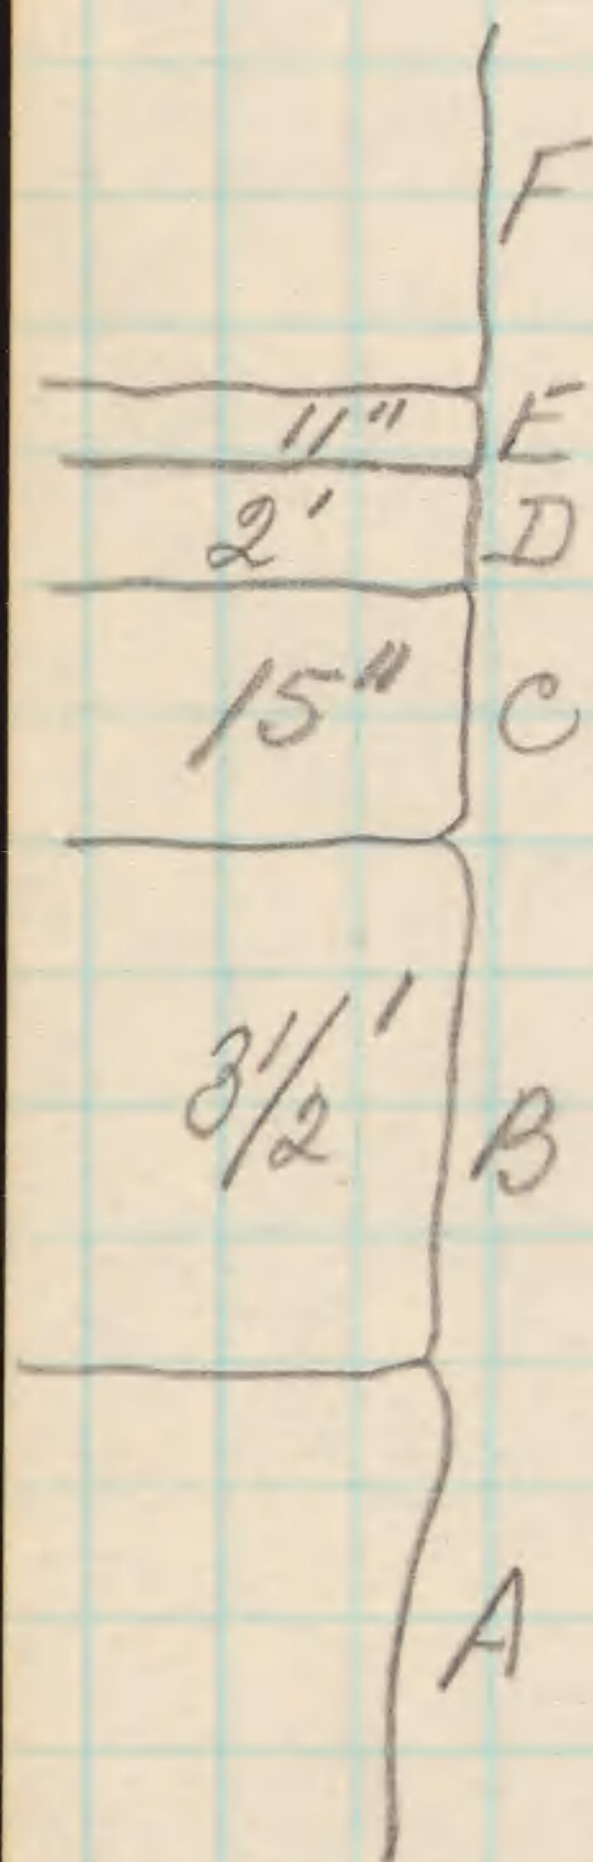 F
11" E
2' D
15" C
3 1/2' B
A